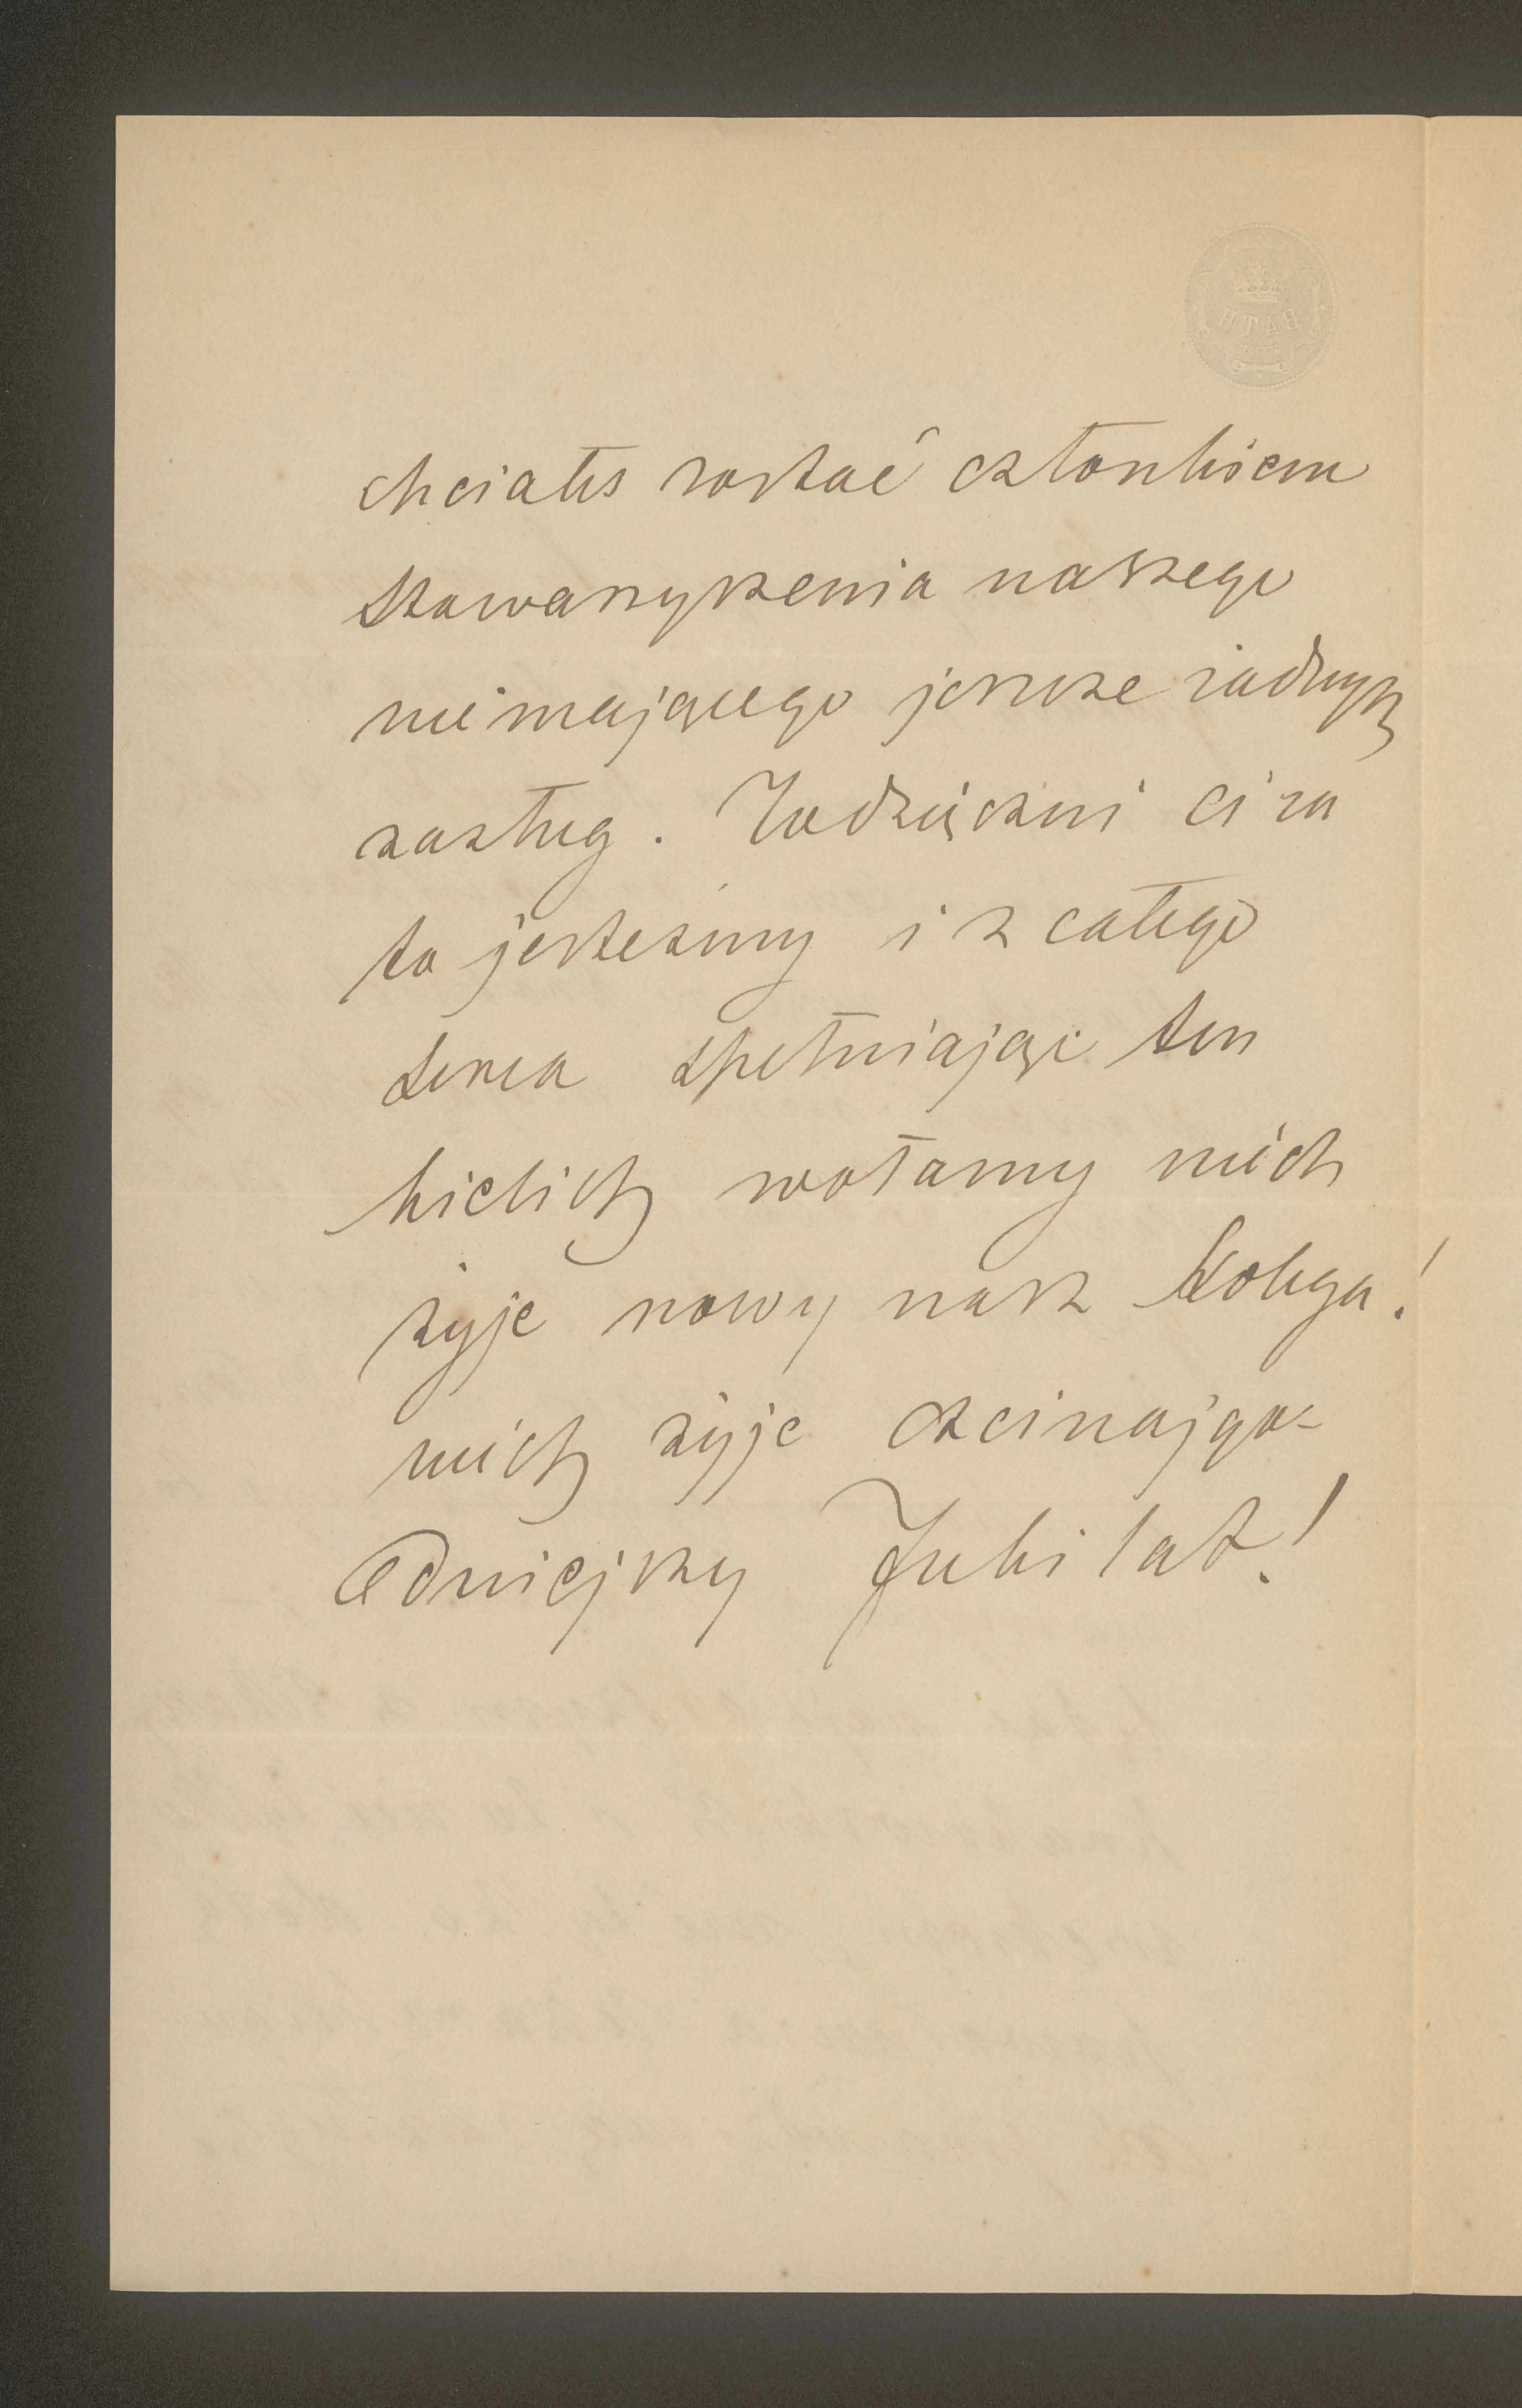 BATH
chciałeś zostać członkiem
stowarzyszenia naszego
nie mającego jeszcze żadnych
zasług. Wdzięczni Ci za
to jesteśmy i z całego
serca spełniając ten
kielich wołamy niech
żyje nowy nasz Kolega!
niech żyje czcinajgo-
dniejszy Jubilat!